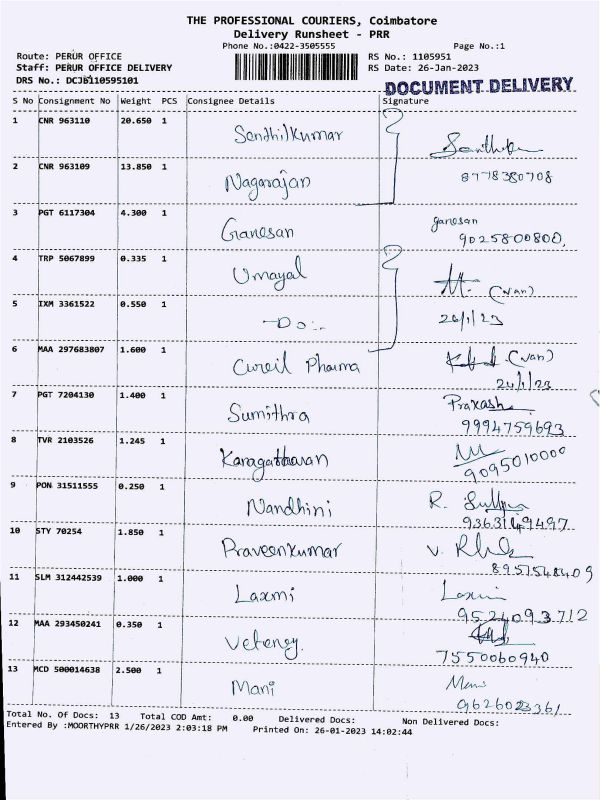 THE PROFESSIONAL COURIERS, Coimbatore
Delivery Runsheet - PRR
Phone No.:0422-3505555 Page No.:1
Route: PERUR OFFICE RS No.: 1105951
Staff: PERUR OFFICE DELIVERY RS Date: 26-Jan-2023
DRS No.: DCJb110595101
DOCUMENT DELIVERY
S No Consignment No Weight PCS Consignee Details Signature
1 CNR 963110 20.650 1 Senthilkumar
2 CNR 963109 13.850 1 Nagarajan 8778380708
3 PGT 6117304 4.300 1 Ganesan ganesan
9025800800.
4 TRP 5067899 0.335 1 Umayal (van)
5 IXM 3361522 0.550 1 -Do:- 26/1/23
6 MAA 297683807 1.600 1 Cureil Pharma (van)
26/1/23
7 PGT 7204130 1.400 1 Sumithra Prakash
9994759693
8 TVR 2103526 1.245 1 9095010000
9 PON 31511555 0.250 1 Nandhini R.
9363149497
10 STY 70254 1.850 1 Praveenkumar V.
8951548409
11 SLM 312442539 1.000 1 Laxmi Laxmi
9524093712
12 MAA 293450241 0.350 1
7550060940
13 MCD 500014638 2.500 1 Mani Mani
9626023361
Total No. Of Docs: 13 Total COD Amt: 0.00 Delivered Docs: Non Delivered Docs:
Entered By :MOORTHYPRR 1/26/2023 2:03:18 PM Printed On: 26-01-2023 14:02:44